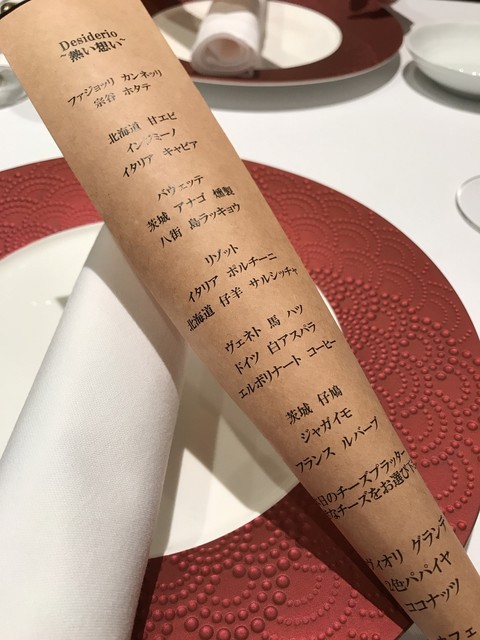 Desiderio
~熱い想い~
ファジョッリ カンネッリ
宗谷 ホタテ
北海道 甘エビ
インジミーノ
イタリア キャビア
パヴェッテ
茨城 アナゴ 燻製
八街 島ラッキョウ
リゾット
イタリア ポルチーニ
北海道 仔羊 サルシッチャ
ヴェネト 馬 ハツ
ドイツ 白アスパラ
エルボリナート コーヒー
茨城 仔鳩
ジャガイモ
フランス ルバーブ
日のチーズプラッター
なチーズをお選び下
ヴィオリ グランデ
色パパイヤ
ココナッツ
カフェ